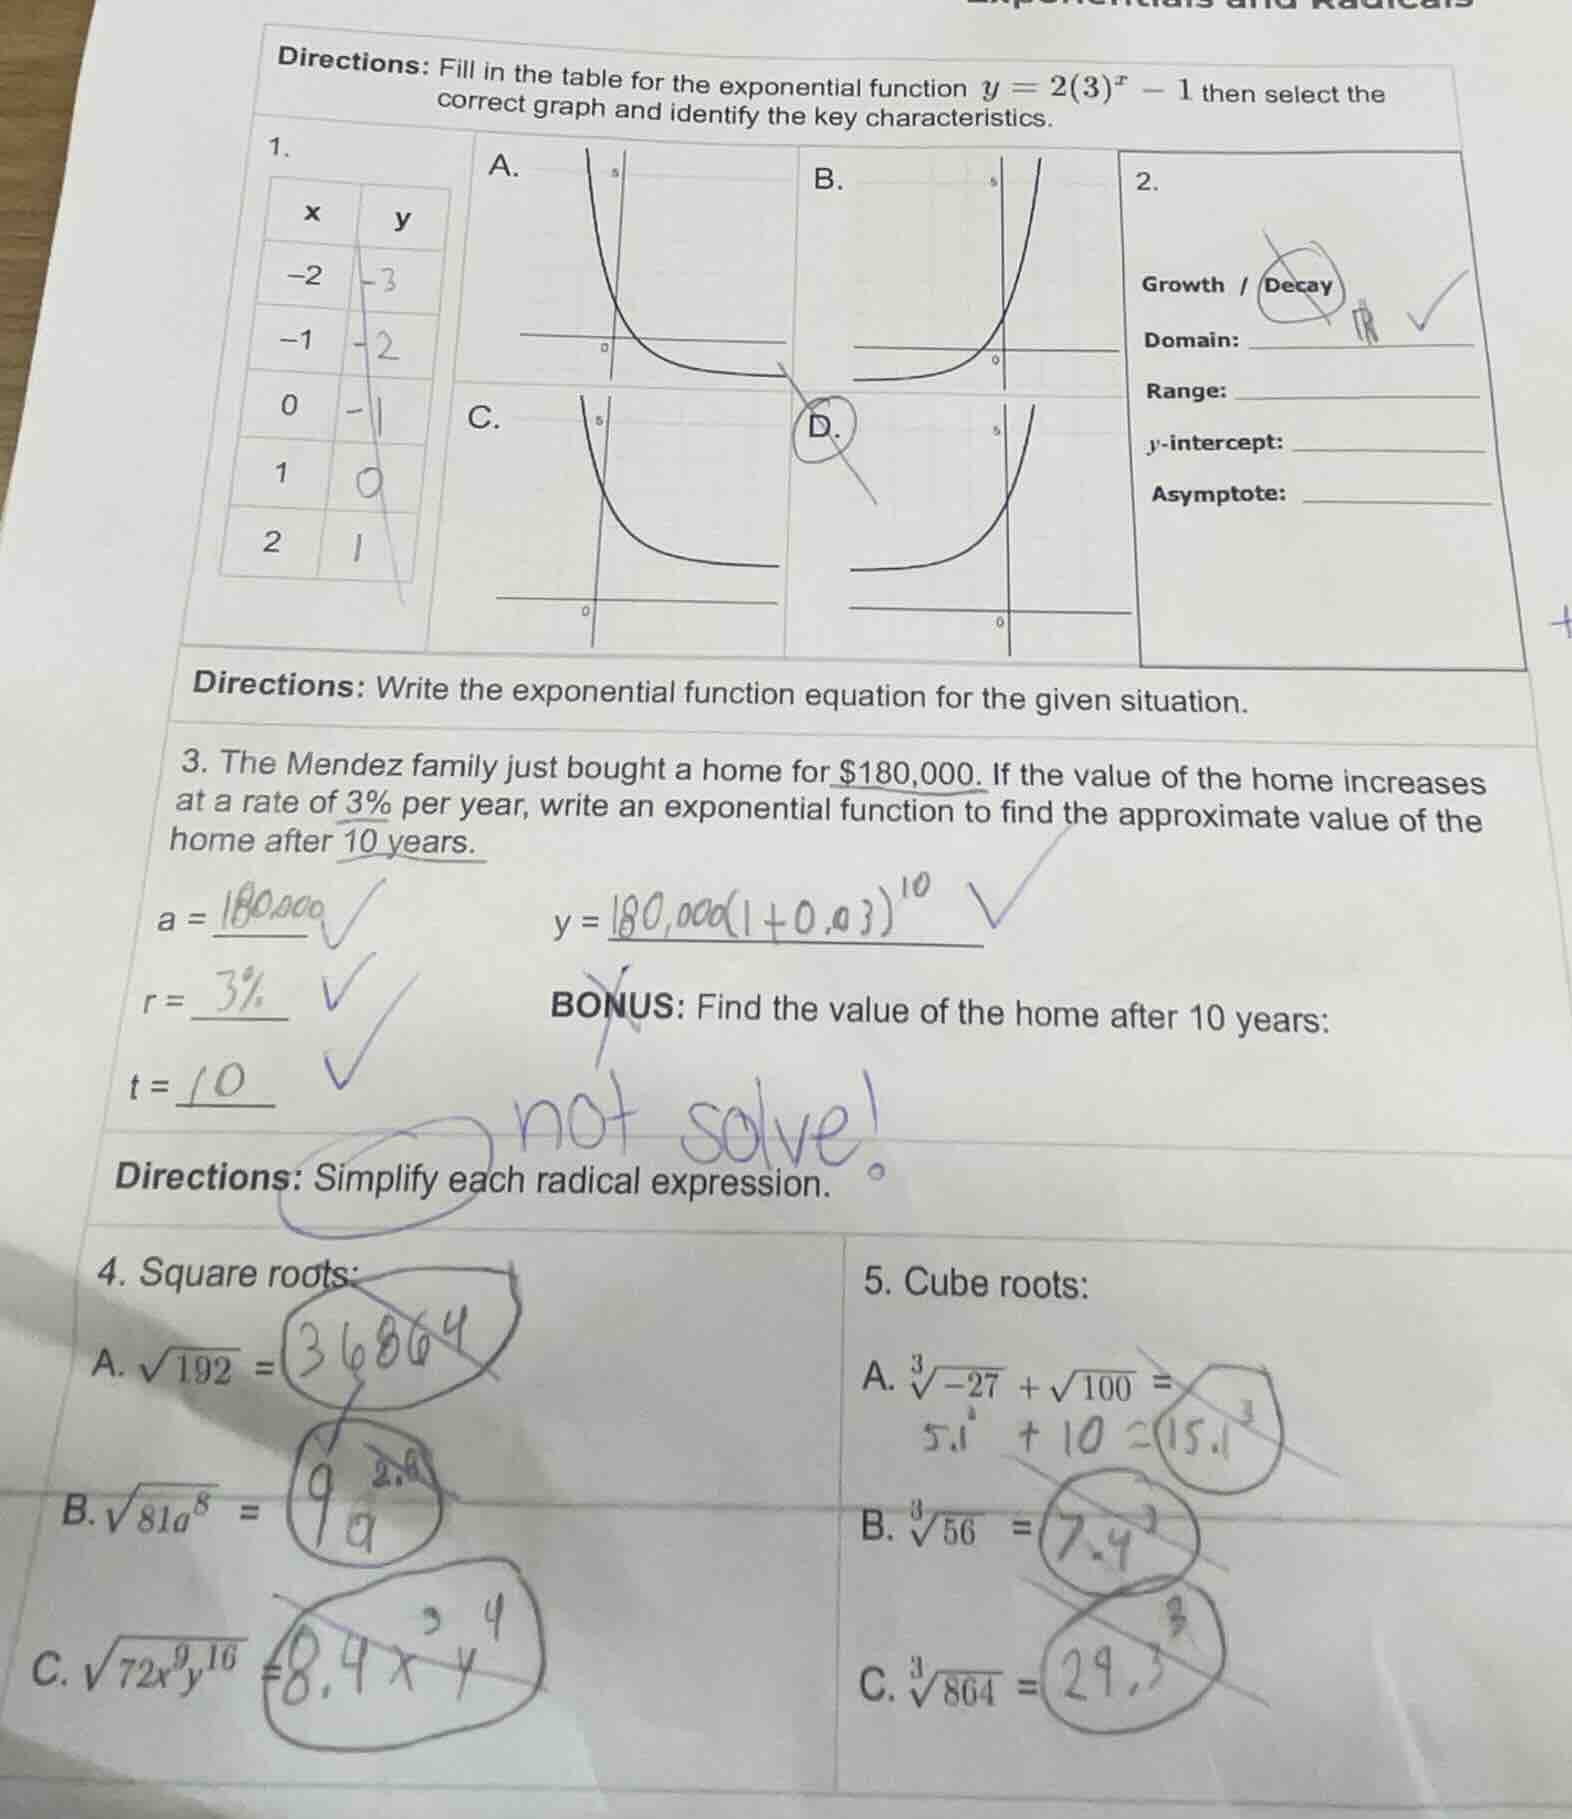 Exponentials and Radicals
Directions: Fill in the table for the exponential function y = 2(3)^x − 1 then select the
correct graph and identify the key characteristics.
1.
x y
−2 -3
−1 -2
0 -1
1 0
2 1
A.
5
0
B.
5
0
C.
5
0
D.
5
0
2.
Growth / Decay
Domain: ℝ
Range:
y-intercept:
Asymptote:
Directions: Write the exponential function equation for the given situation.
3. The Mendez family just bought a home for $180,000. If the value of the home increases
at a rate of 3% per year, write an exponential function to find the approximate value of the
home after 10 years.
a = 180,000
y = 180,000(1+0.03)^10
r = 3%
BONUS: Find the value of the home after 10 years:
t = 10
not solve!
Directions: Simplify each radical expression.
4. Square roots:
A. √192 = 36864
B. √81a^8 = 9a^2.8
C. √72x^9y^16 = 8.4x^3y^4
5. Cube roots:
A. ∛−27 + √100 =
5.1 + 10 = 15.1^3
B. ∛56 = 7.4^3
C. ∛864 = 29.3^3